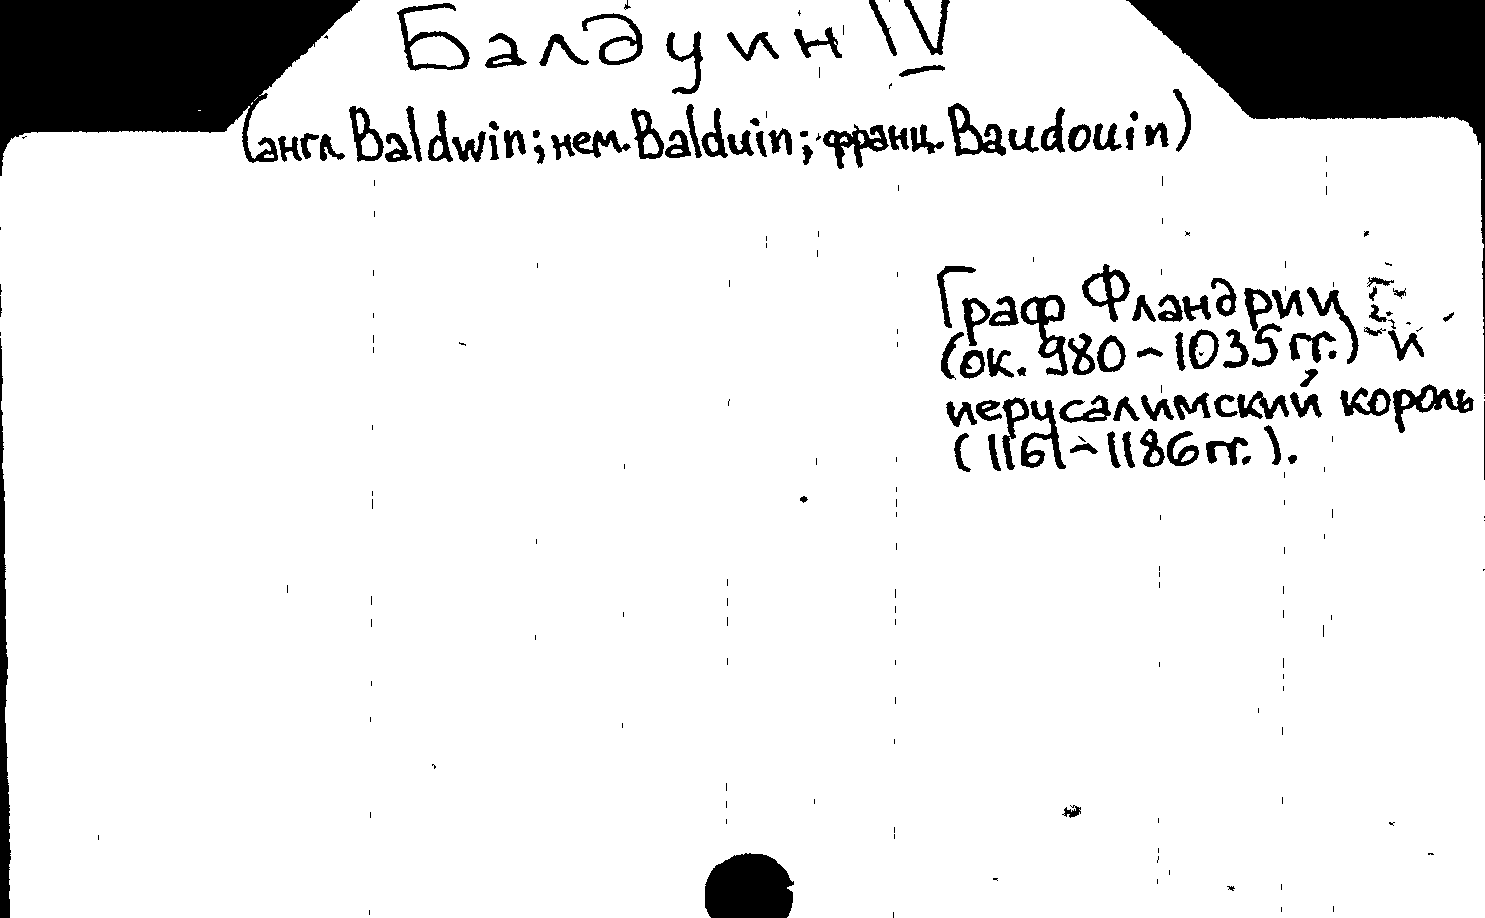 Балдуин IV
(англ. Baldwin; нем. Balduin; франц. Baudouin)
Граф Фландрии
(ок. 980-1035 гг.) и
иерусалимский король
(1161-1186 гг.).